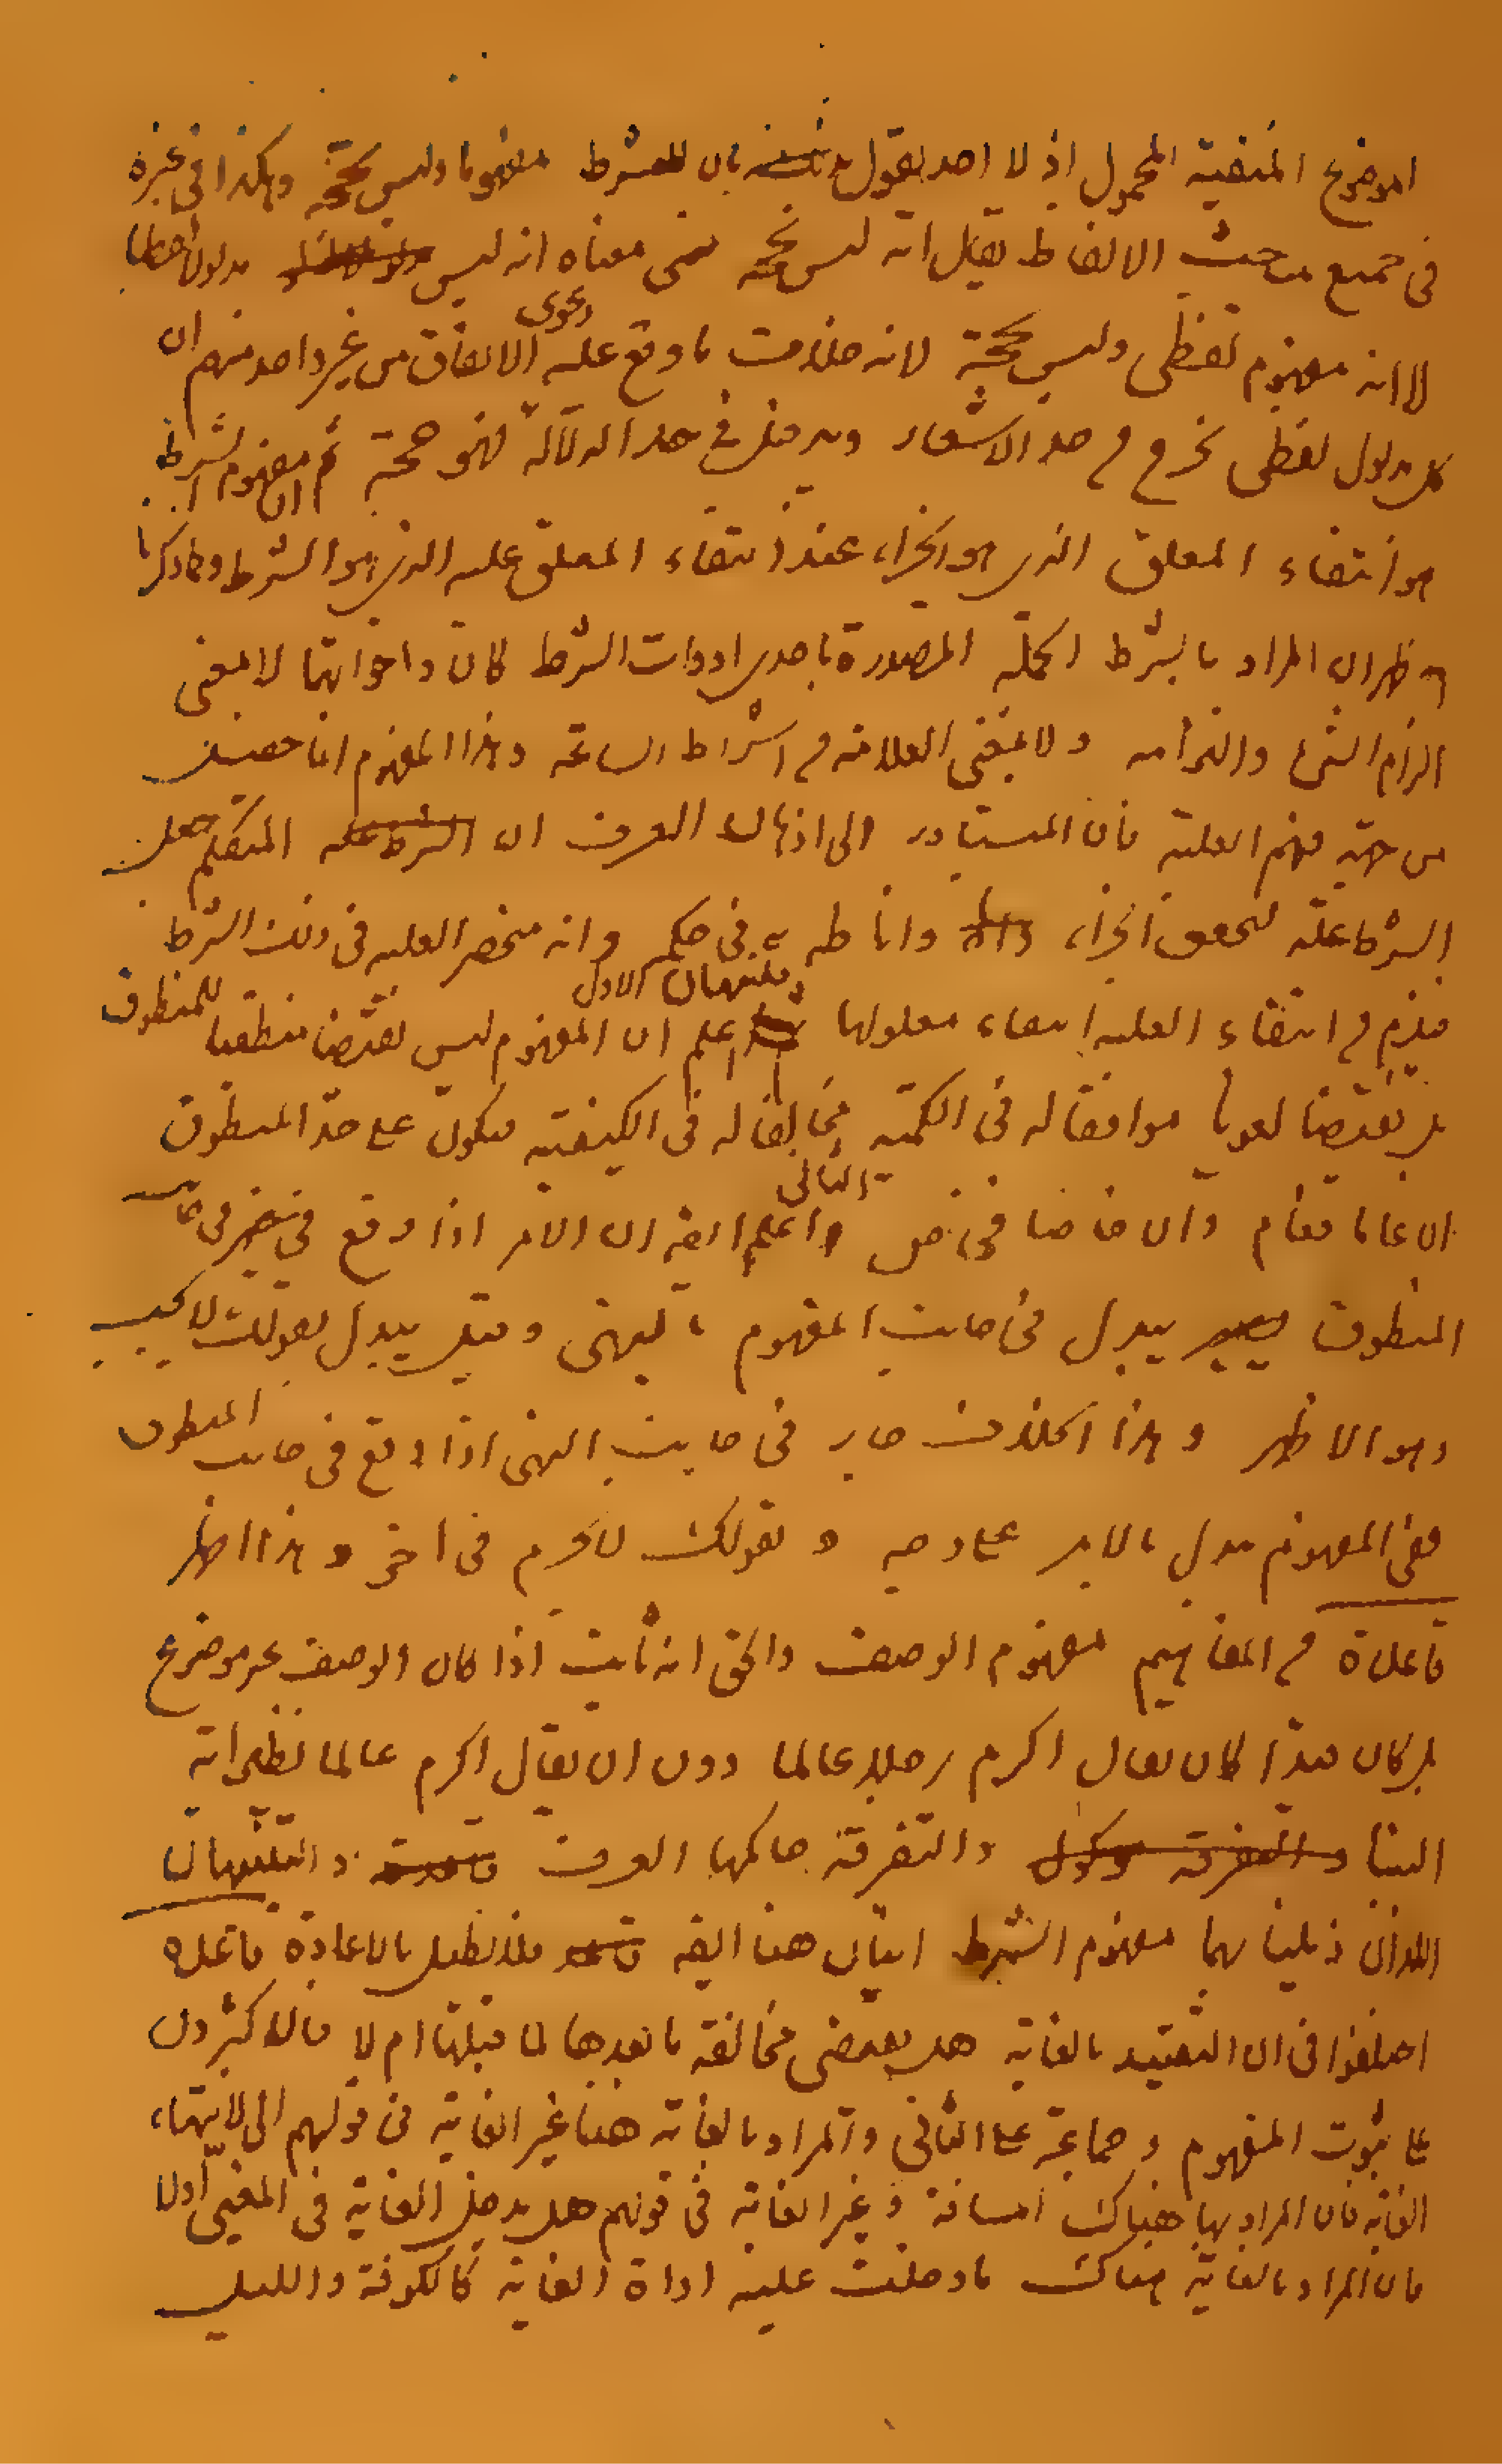 الموضوع المنفية المحمول اذ لا احد يقول بان للشرط مفهوما وليس بحجة وهكذا في غيره
في جميع مباحث الالفاظ يقال انه ليس بحجة فمعناه انه ليس مدلولا
لا انه مفهوم لفظي وليس بحجة لانه خلاف ما وقع عليه دعوى الاتفاق من غير واحد منهم ان
كل مدلول لفظي يخرج من حد الاشعار ويدخل في حد الدلالة فهو حجة ثم ان مفهوم الشرط
هو انتفاء المعلق الذي هو الجزاء عند انتفاء المعلق عليه الذي هو الشرط ومما ذكرنا
ظهر ان المراد بالشرط الجملة المصدرة باحدى ادوات الشرط كان واخواتها لا بمعنى
الزام الشيء والتزامه ولا بمعنى العلامة من اشراط الساعة وهذا المفهوم انما حصل
من جهة فهم العلية فان المتبادر الى اذهان العرف ان المتكلم جعل
الشرط علة لتحقق الجزاء واناطه به في حكمه وانه منحصر العلية في ذلك الشرط
فيلزم من انتفاء العلية انتفاء معلولها تنبيهان الاول اعلم ان المفهوم ليس نقيضا منطقيا للمنطوق
بل نقيضا لغويا موافقا له في الكمية مخالفا له في الكيفية فيكون على حد المنطوق
ان عاما فعام وان خاصا فخاص الثاني واعلم ايضا ان الامر اذا وقع في جانب
المنطوق يبدل في جانب المفهوم بالنهي وقيل يبدل بقولك لا يجب
وهو الاظهر وهذا الخلاف جار في جانب النهي اذا وقع في جانب المنطوق
ففي المفهوم يبدل بالامر على وجه وبقولك لا يحرم في اخر وهذا اظهر
قاعدة من المفاهيم مفهوم الوصف والحق انه ثابت اذا كان الوصف غير موضوع
بل كان قيدا كان يقال اكرم رجلا عالما دون ان يقال اكرم عالما نظرا انه
البنا والتفرقة حاكمها العرف والتنبيهان
اللذان ذيلنا بهما مفهوم الشرط اتيان هنا ايضا فلا نطيل بالاعادة قاعدة
اختلفوا في ان التقييد بالغاية هل يقتضي مخالفة ما بعدها لما قبلها ام لا فالاكثرون
على ثبوت المفهوم وجماعة على الثاني والمراد بالغاية هنا غير الغاية في قولهم الى لانتهاء
الغاية فان المراد بها هناك المسافة وغير الغاية في قولهم هل يدخل الغاية في المغيى او لا
فان المراد بالغاية هناك ما دخلت عليه اداة الغاية كالكوفة والليل